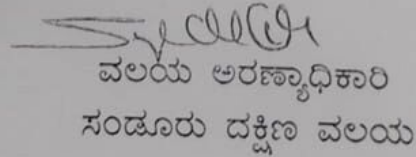 ವಲಯ ಅರಣ್ಯಾಧಿಕಾರಿ
ಸಂಡೂರು ದಕ್ಷಿಣ ವಲಯ